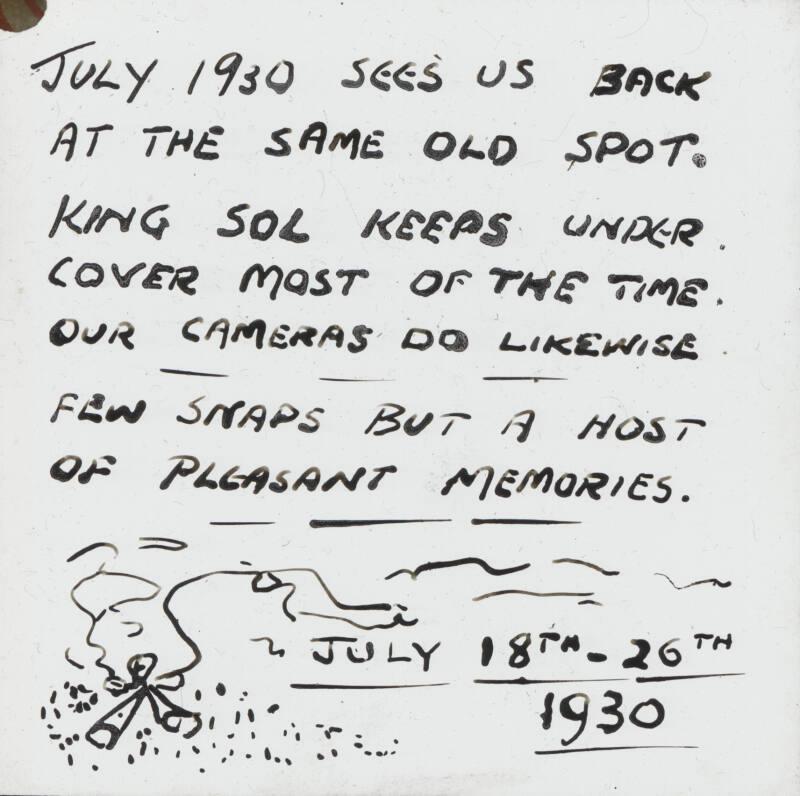 JULY 1930 SEES US BACK
AT THE SAME OLD SPOT.
KING SOL KEEPS UNDER.
COVER MOST OF THE TIME.
OUR CAMERAS DO LIKEWISE
FEW SNAPS BUT A HOST
OF PLEASANT MEMORIES.
JULY 18TH - 26TH
1930